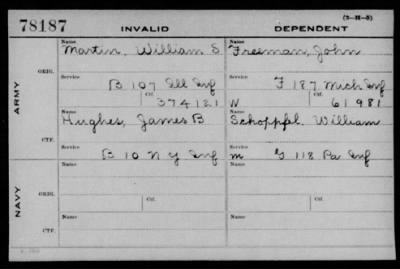 (3-H-5)
78187 INVALID DEPENDENT
Name Name
Martin, William S Freeman, John
ORIG.
Service Service
B 107 Ill Inf F 187 Mich Inf
Ctf. Ctf.
374121 W 61981
ARMY
Name Name
Hughes, James B Schoppfl, William
CTF.
Service Service
B 10 N Y Inf m G 118 Pa Inf
Name Name
ORIG.
Service Ctf. Service Ctf.
NAVY
Name Name
CTF.
Service Service